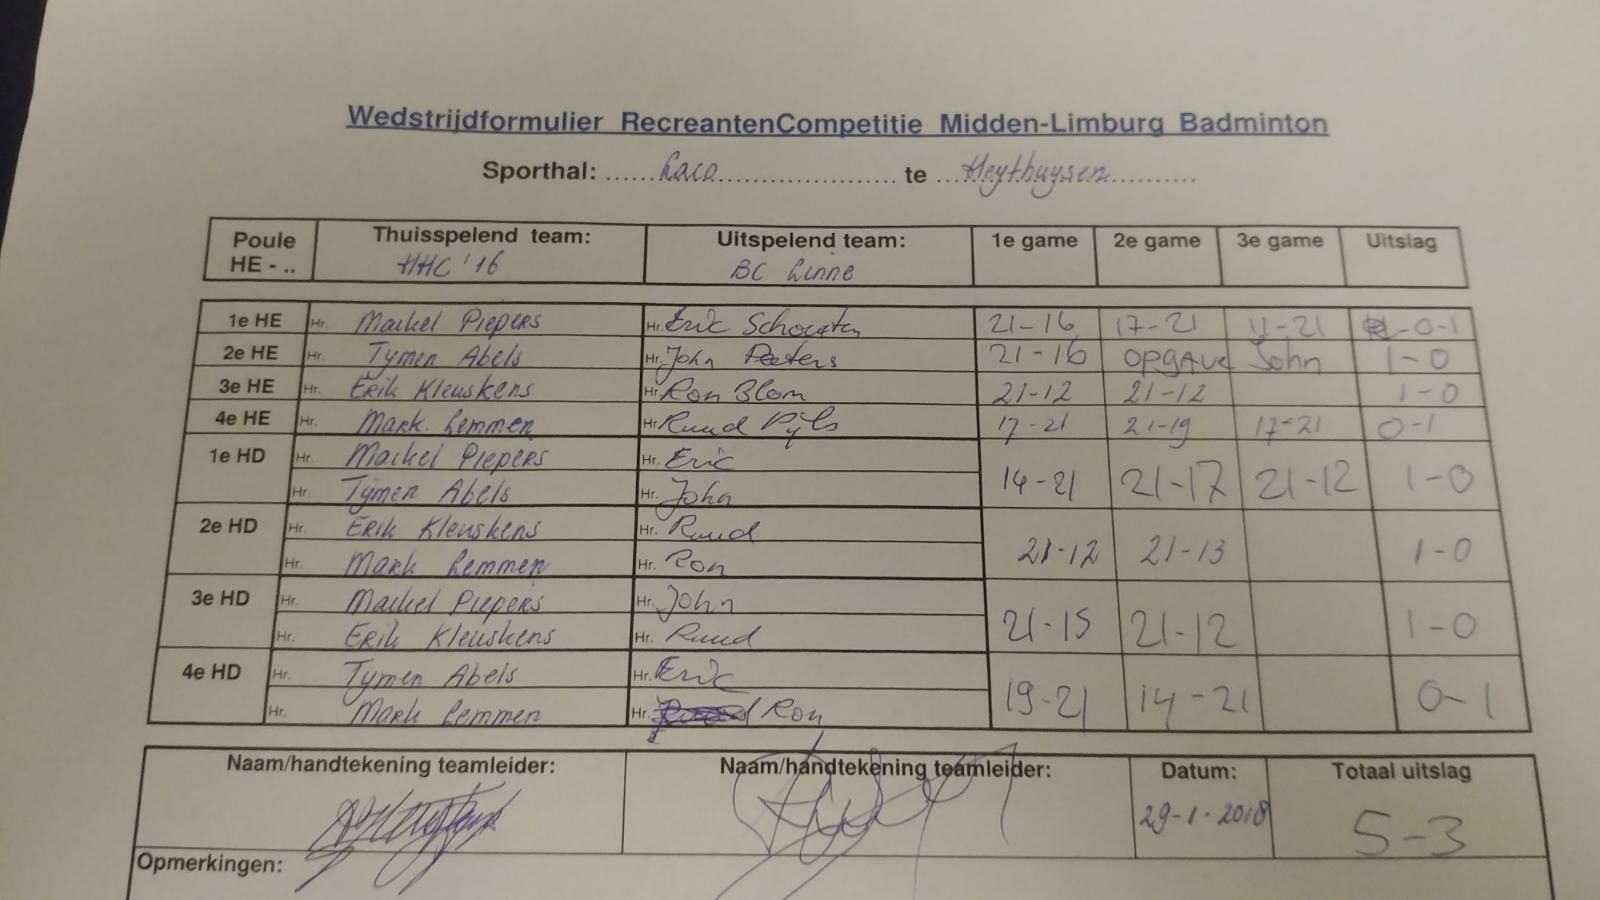 Wedstrijdformulier RecreantenCompetitie Midden-Limburg Badminton
Sporthal: ......Laco.......................... te ...Heythuysen...........
Poule HE - .. Thuisspelend team: HHC '16 Uitspelend team: BC Linne 1e game 2e game 3e game Uitslag
1e HE Hr. Maikel Piepers Hr. Eric Schouten 21-16 17-21 11-21 0-1
2e HE Hr. Tymen Abels Hr. John Peeters 21-16 OPGAVE John 1-0
3e HE Hr. Erik Kleuskens Hr. Ron Blom 21-12 21-12 1-0
4e HE Hr. Mark Lemmen Hr. Ruud Pijls 17-21 21-19 17-21 0-1
1e HD Hr. Maikel Piepers Hr. Eric
Hr. Tymen Abels Hr. John 14-21 21-17 21-12 1-0
2e HD Hr. Erik Kleuskens Hr. Ruud
Hr. Mark Lemmen Hr. Ron 21-12 21-13 1-0
3e HD Hr. Maikel Piepers Hr. John
Hr. Erik Kleuskens Hr. Ruud 21-15 21-12 1-0
4e HD Hr. Tymen Abels Hr. Eric
Hr. Mark Lemmen Hr. Ron 19-21 14-21 0-1
Naam/handtekening teamleider: Naam/handtekening teamleider: Datum: Totaal uitslag
29-1-2018 5-3
Opmerkingen: